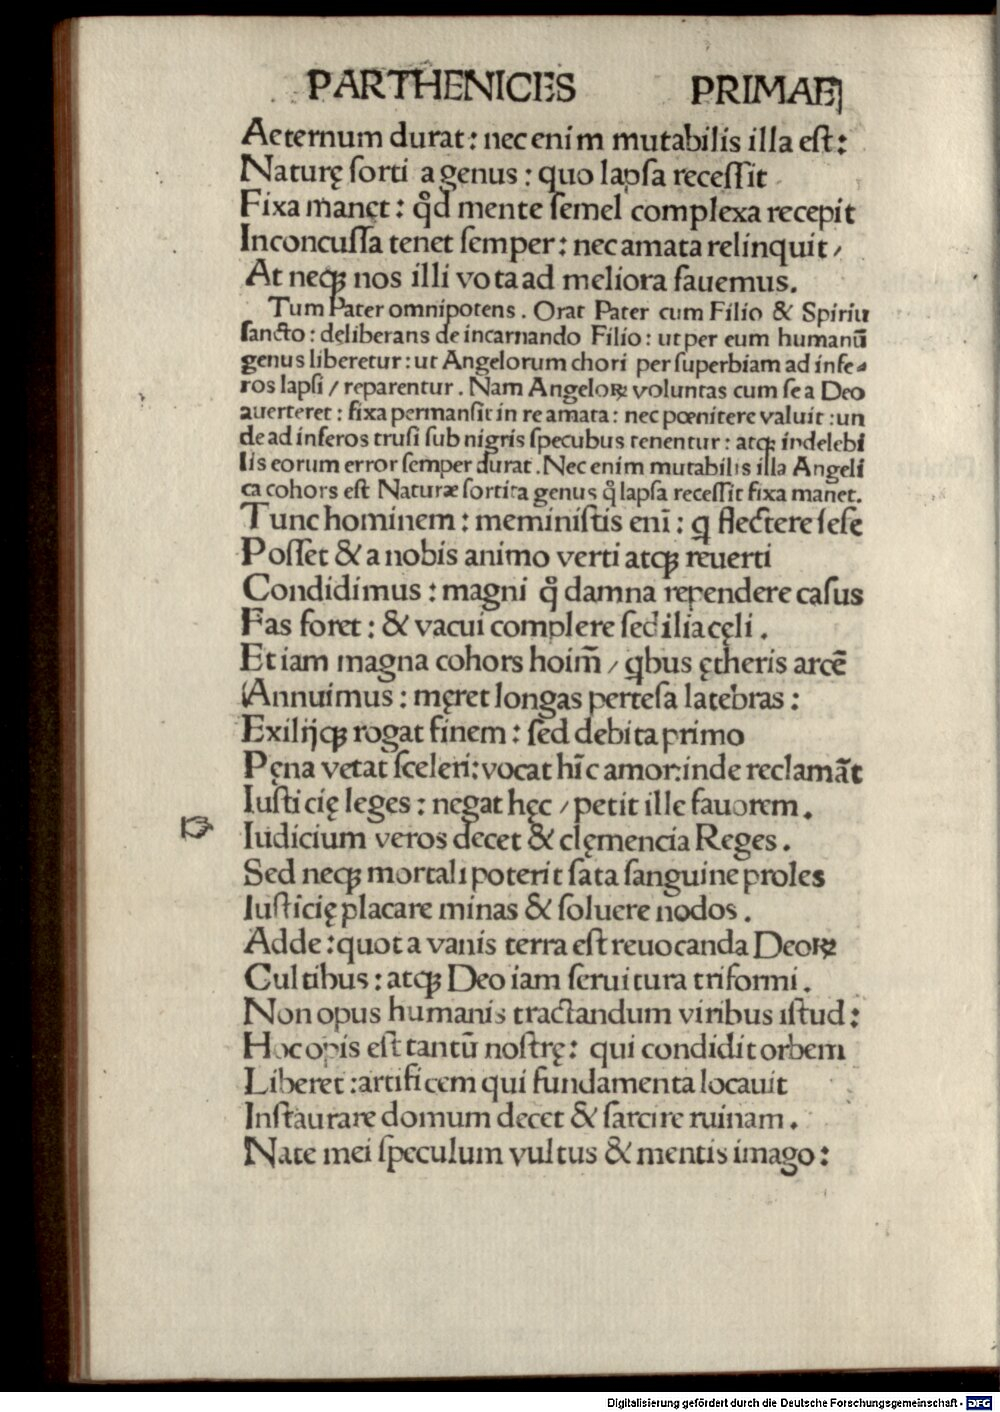 PARTHENICES PRIMAE
Aeternum durat: nec enim mutabilis illa eſt:
Naturę ſorti a genus: quo lapſa receſſit
Fixa manet: qd̊ mente ſemel complexa recepit
Inconcuſſa tenet ſemper: nec amata relinquit /
At neqꝫ nos illi vota ad meliora fauemus.
Tum Pater omnipotens. Orat Pater cum Filio & Spiritu
ſancto: deliberans de incarnando Filio: ut per eum humanū
genus liberetur: ut Angelorum chori per ſuperbiam ad infe⸗
ros lapſi / reparentur. Nam Angeloꝝ voluntas cum ſe a Deo
auerteret: fixa permanſit in re amata: nec pœnitere valuit: un
de ad inferos truſi ſub nigris ſpecubus tenentur: atqꝫ indelebi
lis eorum error ſemper durat. Nec enim mutabilis illa Angeli
ca cohors eſt Naturæ ſortita genus q̊ lapſa receſſit fixa manet.
Tunc hominem: meminiſtis enī: ꝙ flectere ſeſe
Poſſet & a nobis animo verti atqꝫ reuerti
Condidimus: magni q̊ damna rependere caſus
Fas foret: & vacui complere ſedilia cęli.
Et iam magna cohors hoim̄ / qbus ętheris arcē
Annuimus: męret longas perteſa latebras:
Exilijqꝫ rogat finem: ſed debita primo
Pęna vetat ſceleri: vocat hīc amor: inde reclamāt
Iuſticię leges: negat hęc / petit ille fauorem.
☞ Iudicium veros decet & clęmencia Reges.
Sed neqꝫ mortali poterit ſata ſanguine proles
Iuſticię placare minas & ſoluere nodos.
Adde: quot a vanis terra eſt reuocanda Deoꝝ
Cultibus: atqꝫ Deo iam ſeruitura triformi.
Non opus humanis tractandum viribus iſtud:
Hoc opis eſt tantū noſtrę: qui condidit orbem
Liberet: artificem qui fundamenta locauit
Inſtaurare domum decet & ſarcire ruinam.
Nate mei ſpeculum vultus & mentis imago:
Digitalisierung gefördert durch die Deutsche Forschungsgemeinschaft - DFG